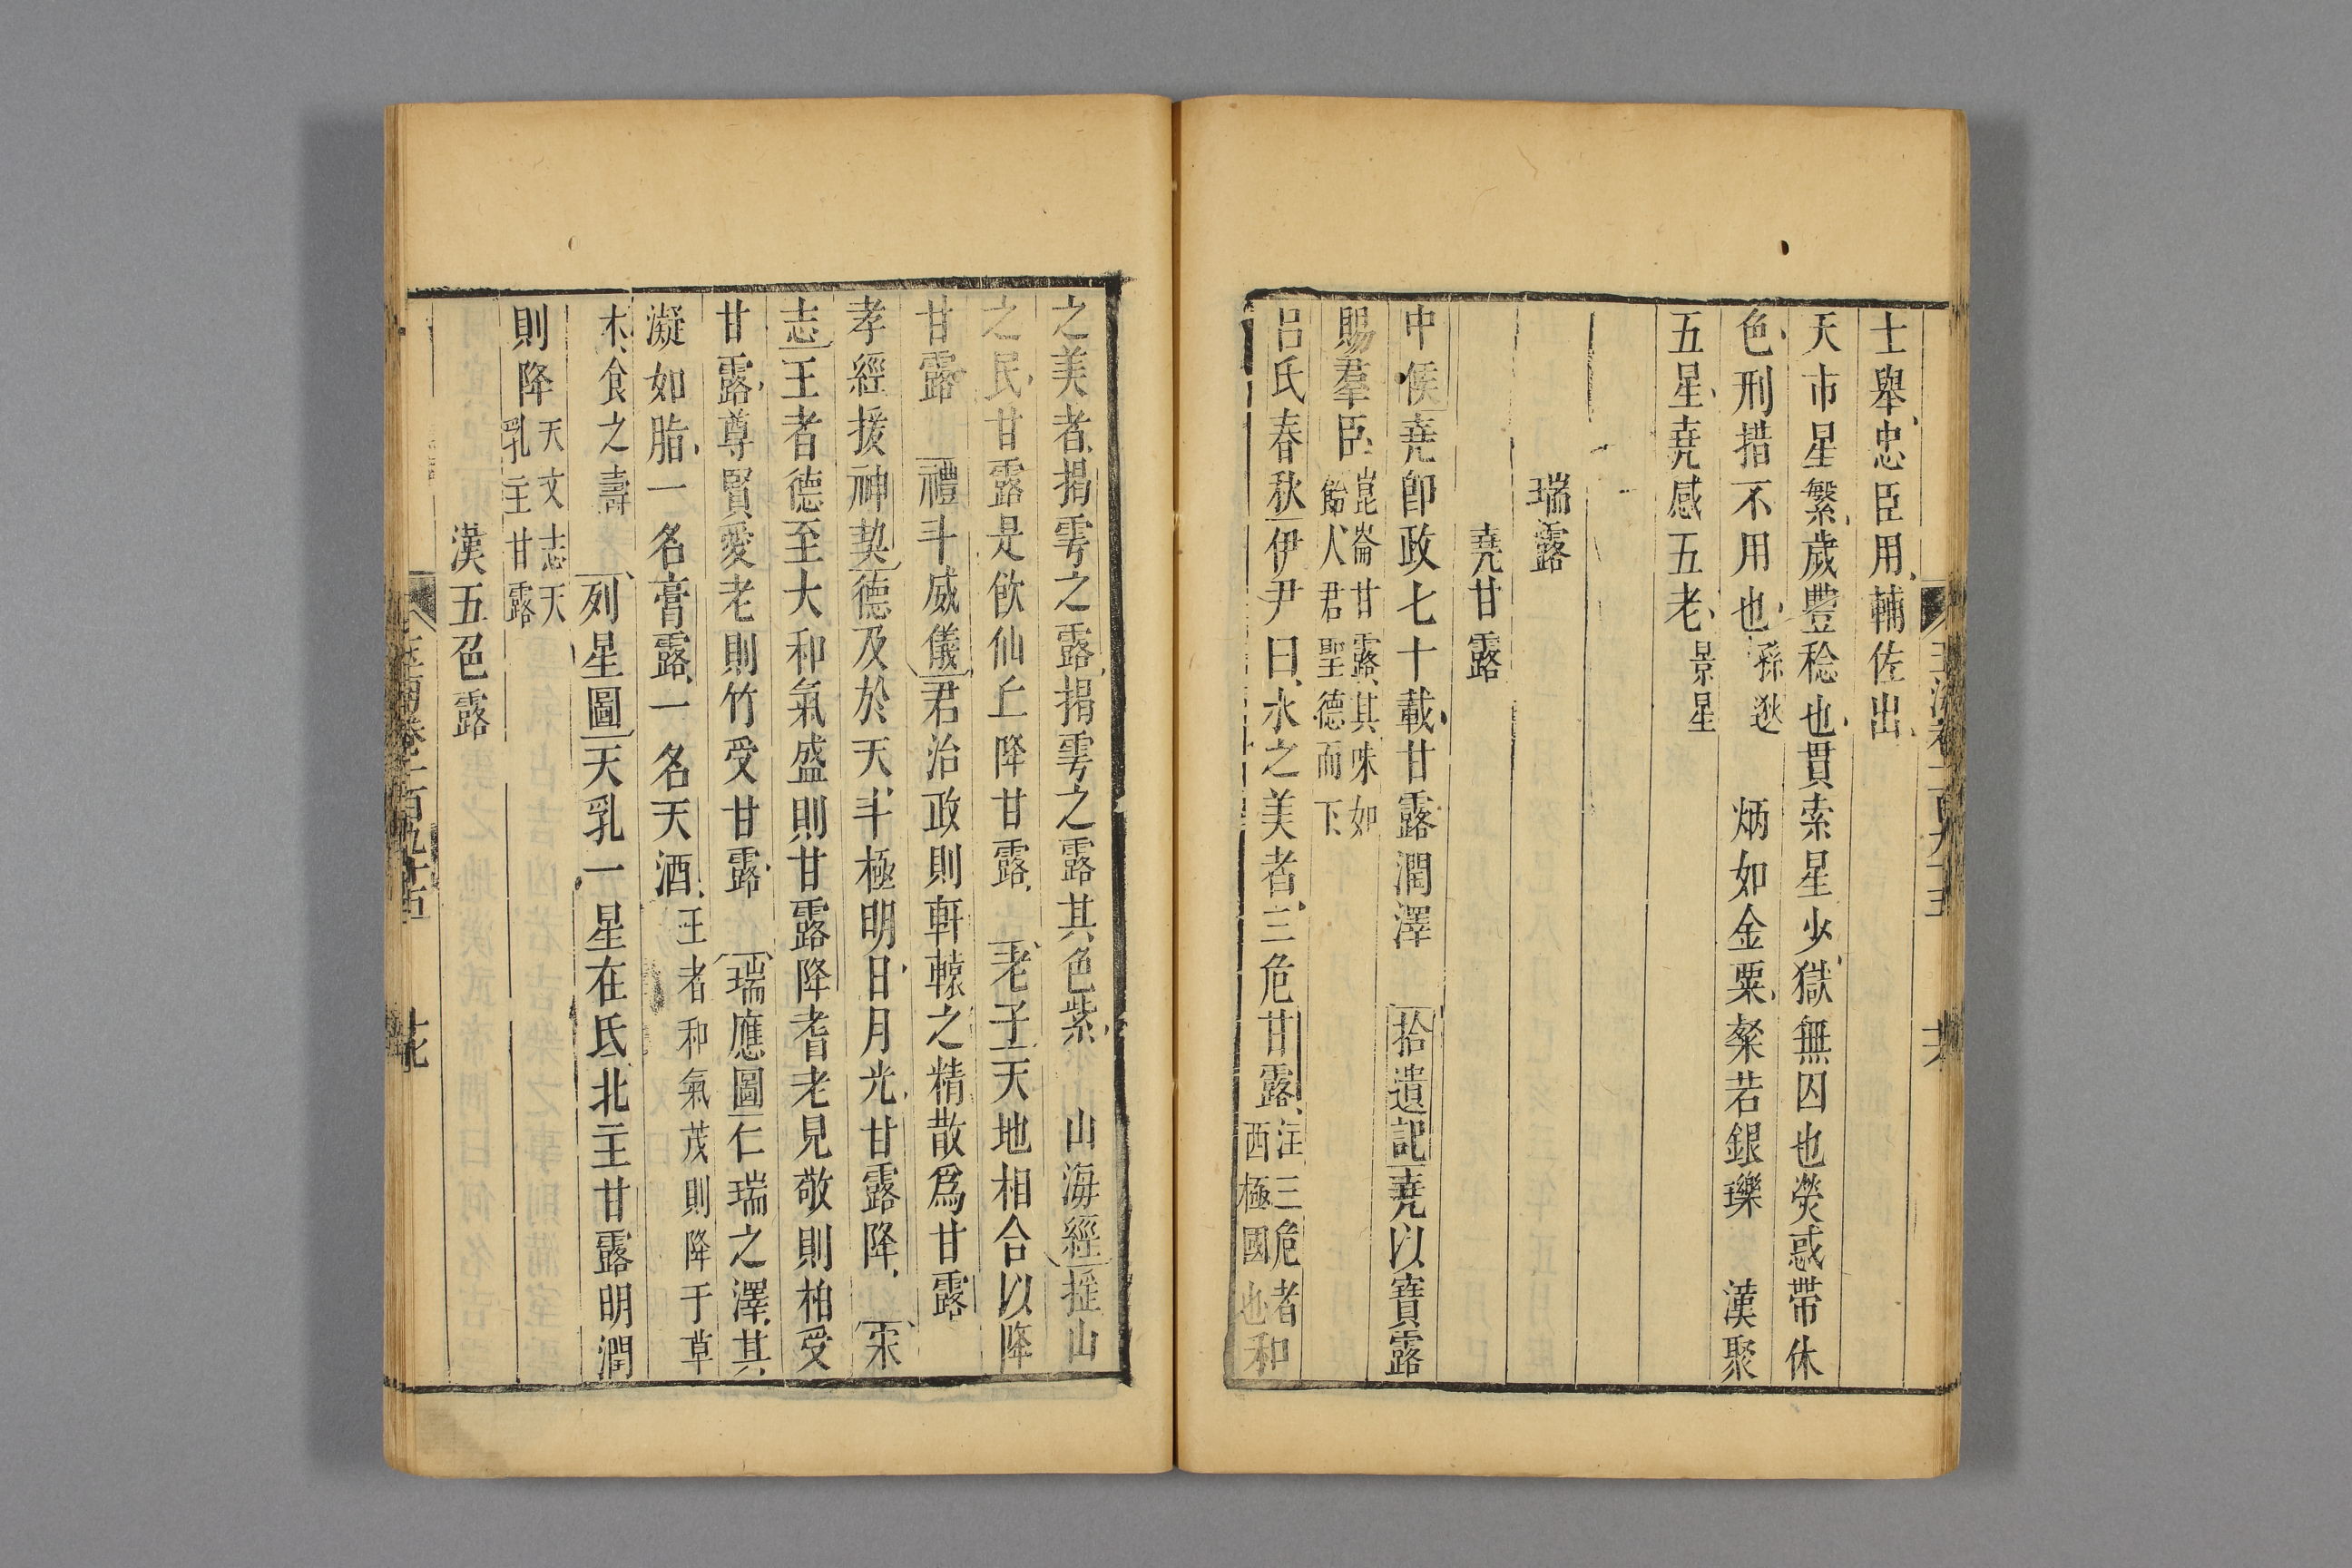 士舉忠臣用輔佐出
天市星繁歲豐稔也貫索星少獄無囚也熒惑帶休
色刑措不用也孫逖　炳如金粟粲若銀瓅　漢聚
五星堯感五老景星
瑞露
堯甘露
中候堯卽政七十載甘露潤澤　拾遺記堯以寶露
賜羣臣崑崙甘露其味如
飴人君聖德而下
呂氏春秋伊尹曰水之美者三危甘露注三危者
西極國也和
之美者揭雩之露揭雩之露其色紫　山海經摇山
之民甘露是飲仙丘降甘露　老子天地相合以降
甘露　禮斗威儀君治政則軒轅之精散爲甘露
孝經援神契德及於天斗極明日月光甘露降　宋
志王者德至大和氣盛則甘露降耆老見敬則柏受
甘露尊賢愛老則竹受甘露　瑞應圖仁瑞之澤其
凝如脂一名膏露一名天酒王者和氣茂則降于草
木食之壽　列星圖天乳一星在氐北主甘露明潤
則降天文志天
乳主甘露
漢五色露